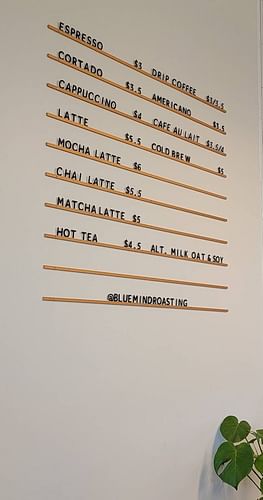 ESPRESSO $3 DRIP COFFEE $3/3.5
CORTADO $3.5 AMERICANO $3.5
CAPPUCCINO $4 CAFE AU LAIT $3.5/4
LATTE $5.5 COLD BREW $5
MOCHA LATTE $6
CHAI LATTE $5.5
MATCHA LATTE $5
HOT TEA $4.5 ALT. MILK OAT & SOY
@BLUEMINDROASTING